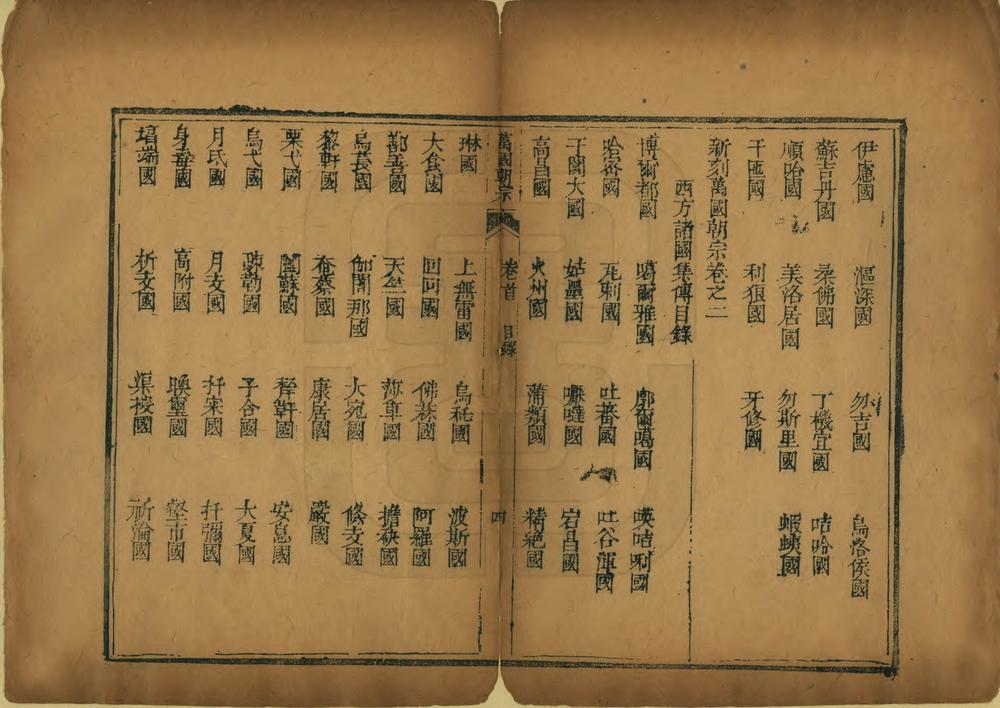 伊爐國 漚深國 勿吉國 烏洛侯國
蘇吉丹國 柔佛國 丁機宜國 咭哈國
順哈國 美洛居國 勿斯里國 蝦蛦國
干匝國 利狼國 牙修國
新刻萬國朝宗卷之二
西方諸國集傳目錄
博爾都國 噶爾雅國 廓爾噶國 暎咭唎國
哈密國 瓦剌國 吐蕃國 吐谷渾國
于闐大國 姑墨國 嚈噠國 宕昌國
高昌國 火州國 蒲類國 精絕國
萬國朝宗 卷首 目錄 四
琳國 上無雷國 烏秅國 波斯國
大食國 回回國 佛森國 阿羅國
鄯善國 天竺國 沙車國 擔袂國
烏萇國 伽闍那國 大宛國 條支國
黎軒國 奄蔡國 康居國 嚴國
栗弋國 罽蘇國 犂軒國 安息國
烏弋國 疎勒國 子合國 大夏國
月氏國 月支國 扜罙國 扜彌國
身毒國 高附國 聰璽國 壑市國
堉端國 析支國 渠搜國 祈淪國